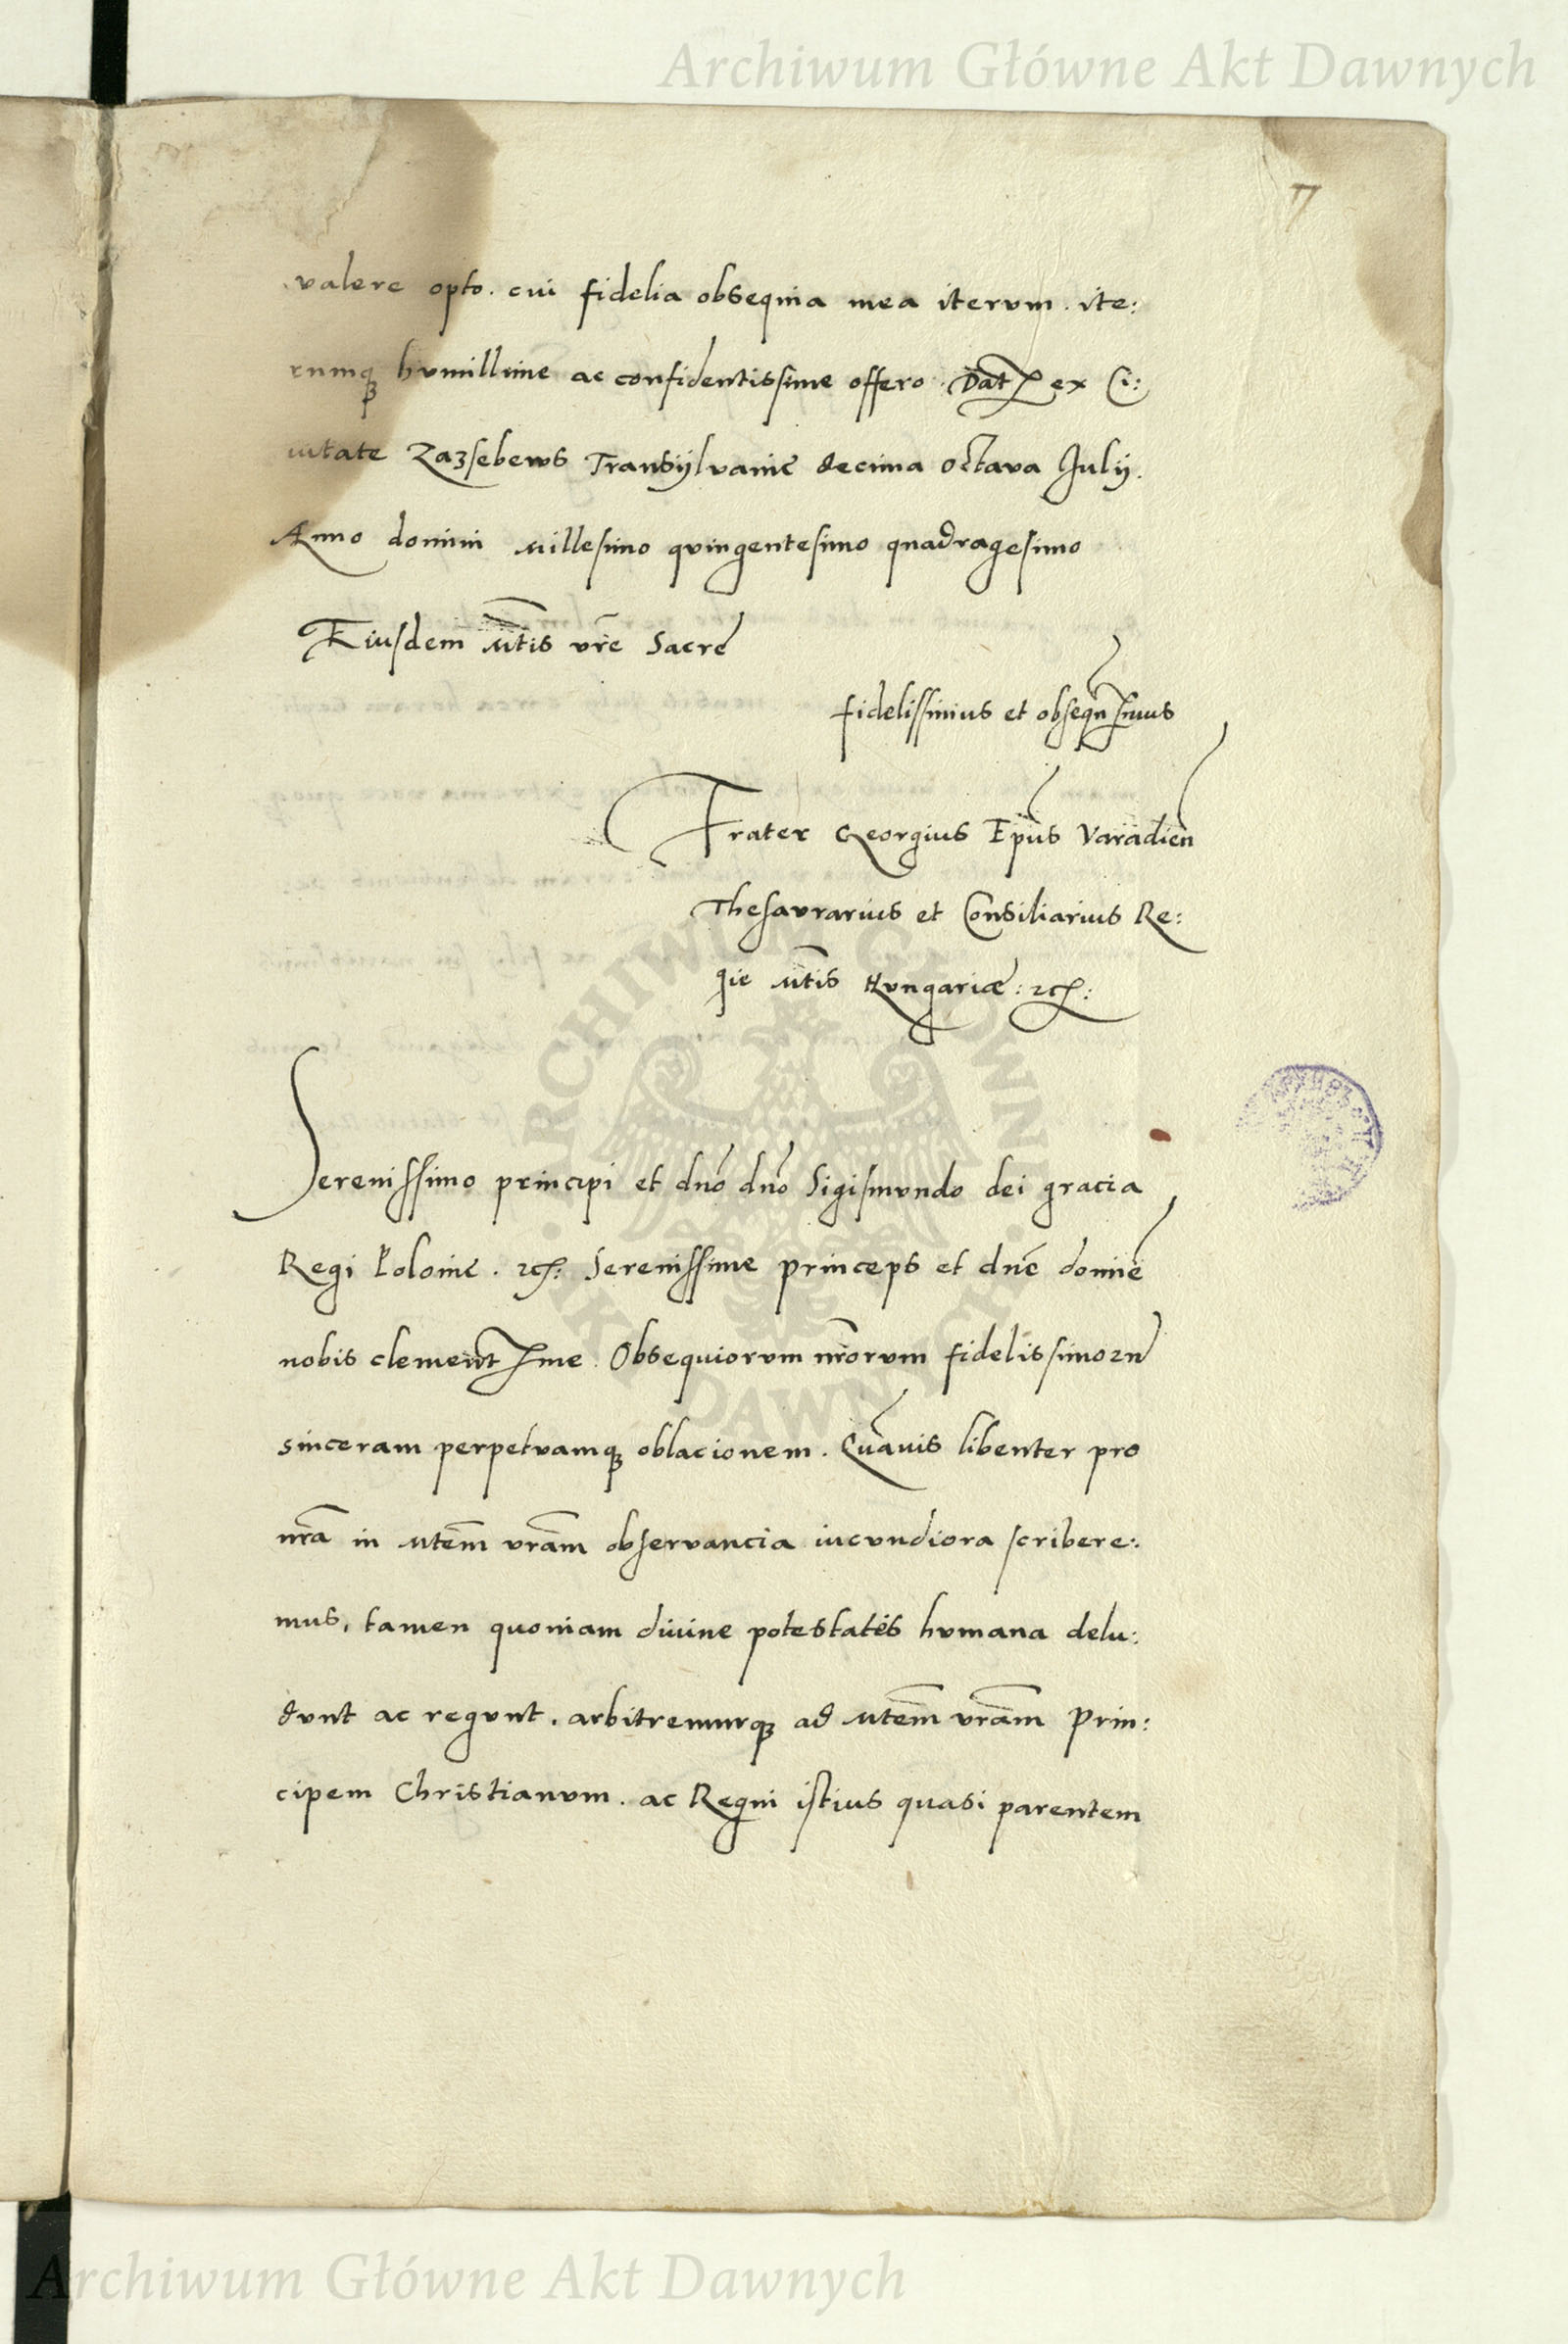 Archiwum Główne Akt Dawnych
17
valere opto. cui fidelia obsequia mea iterum. ite:
rumq humillime ac confidentissime offero. Dat ex Ci:
uitate Zazsebews Transÿlvanie decima octava Julij.
Anno domini millesimo quingentesimo quadragesimo
Eiusdem Mtis vre Sacre
fidelissimus et obsequ imus
Frater Georgius Epus Varadien
Thesaurarius et Consiliarius Re:
gie Mtis Hungariæ: etc:
Serenissimo principi et dno dno Sigismundo dei gracia
Regi Polonie. etc: Serenissime princeps et dne domine
nobis clement me. Obsequiorum nrorum fidelissimorum
sinceram perpetuamq oblacionem. Quavis libenter pro
nra in Mtem vram observancia iucundiora scribere:
mus, tamen quoniam divine potestates humana delu:
dunt ac regunt. arbitremurq ad Mtem vram Prin:
cipem Christianum. ac Regni istius quasi parentem
ARCHIWUM GŁÓWNE AKT DAWNYCH
Archiwum Główne Akt Dawnych